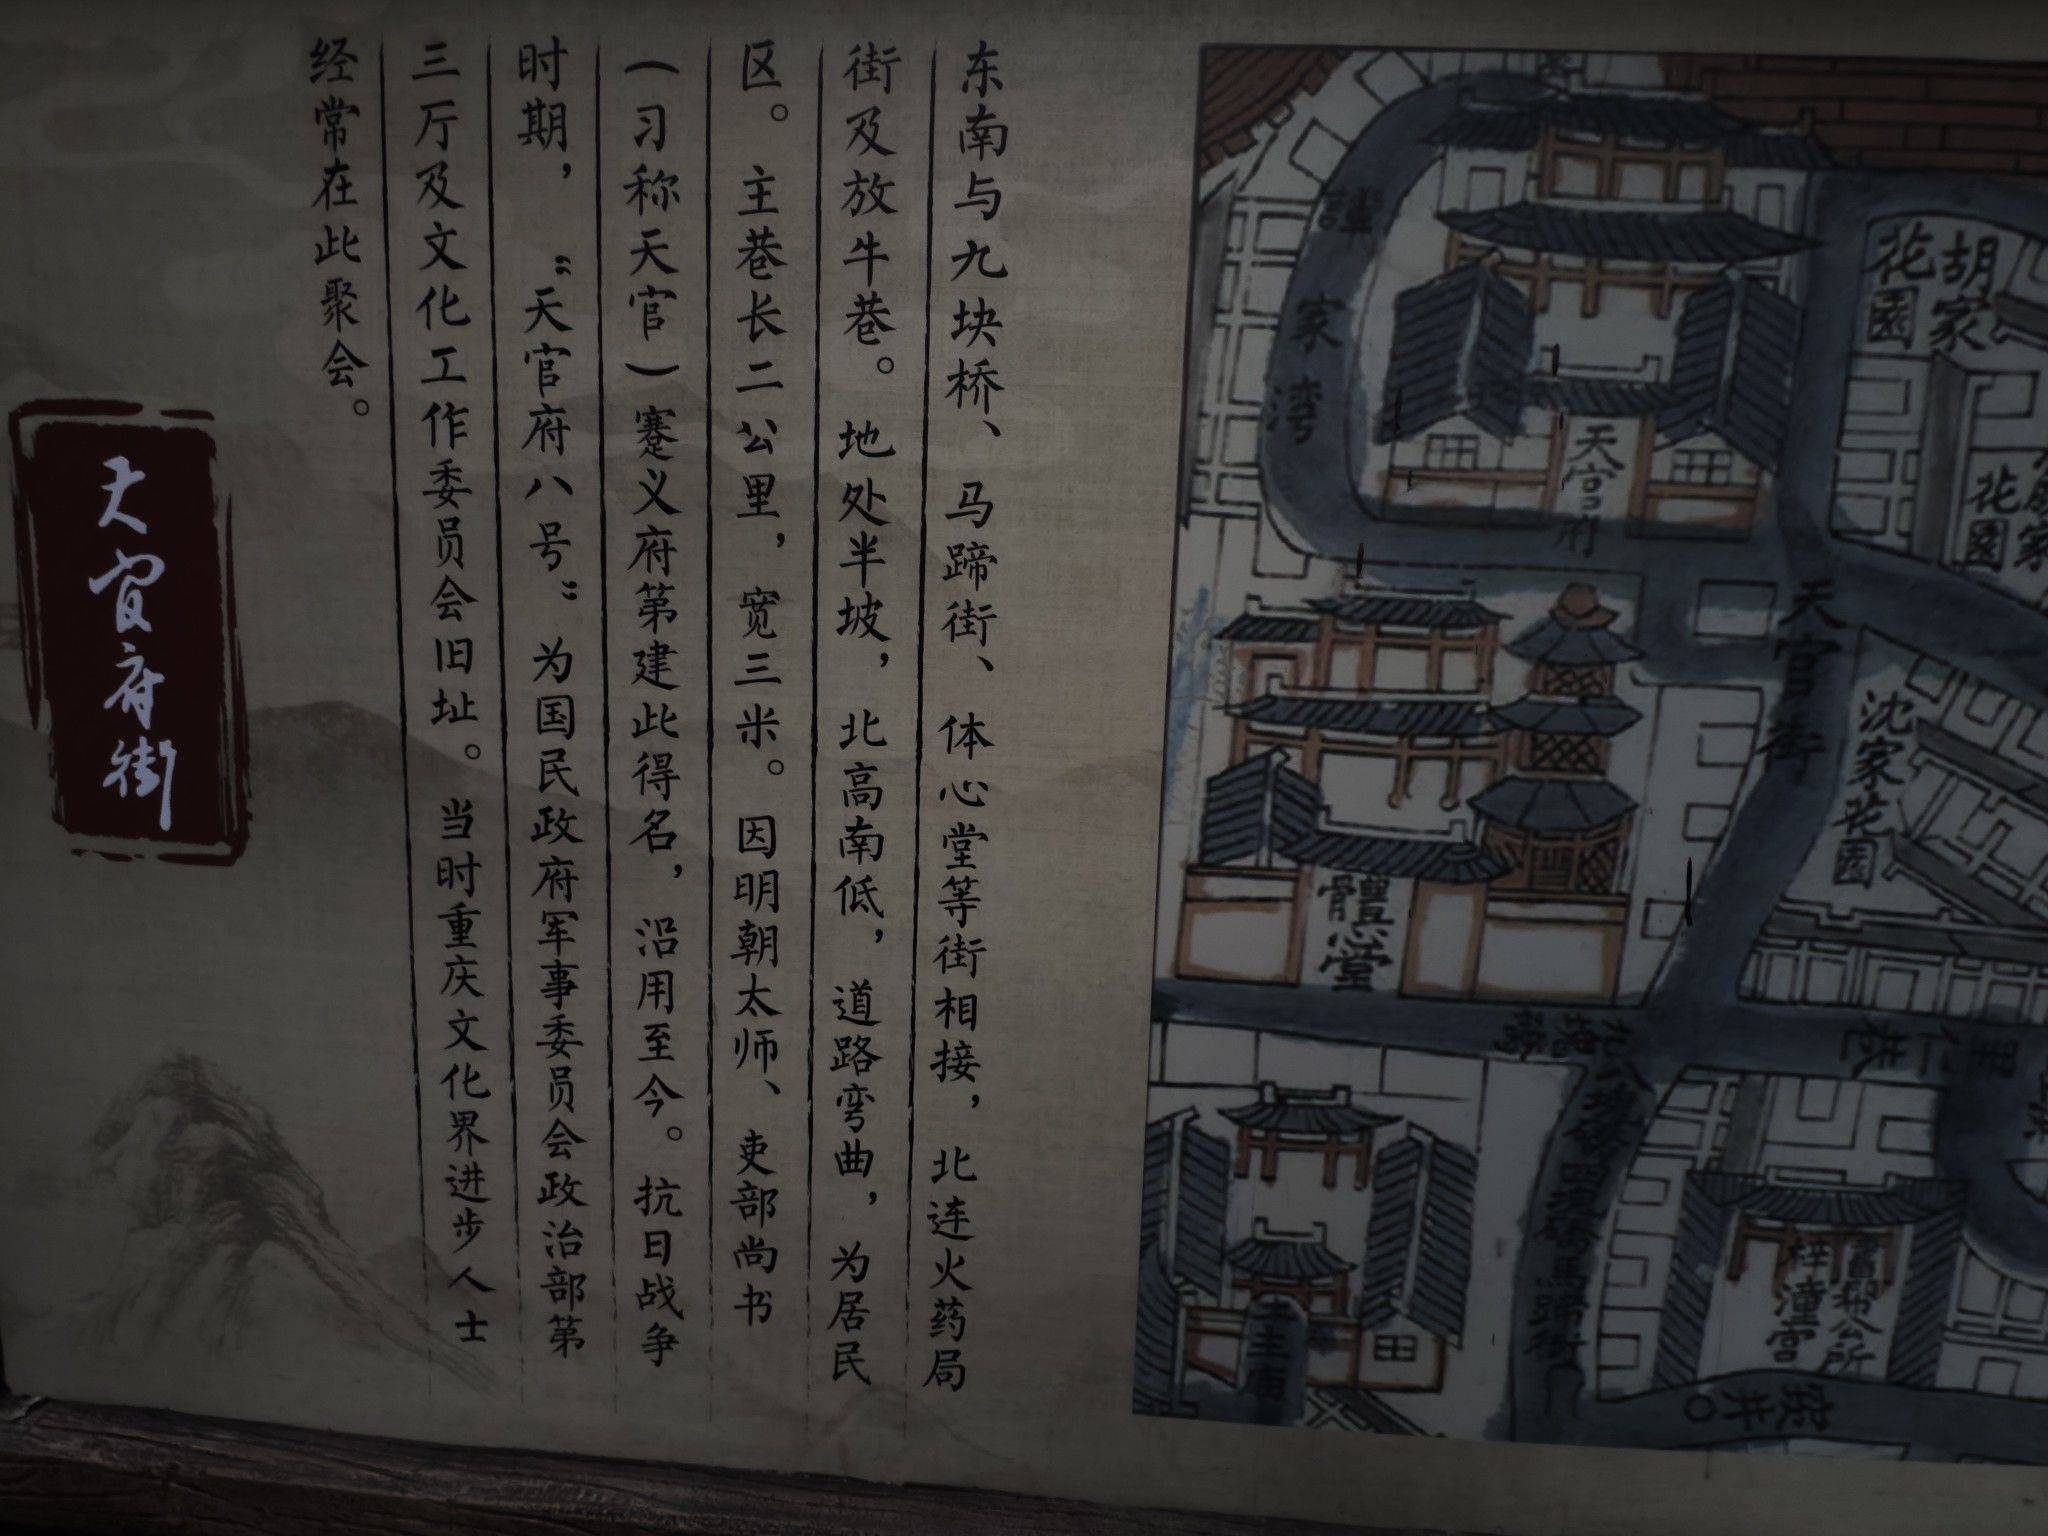 东南与九块桥、马蹄街、体心堂等街相接，北连火药局
街及放牛巷。地处半坡，北高南低，道路弯曲，为居民
区。主巷长二公里，宽三米。因明朝太师、吏部尚书
（习称天官）蹇义府第建此得名，沿用至今。抗日战争
时期，“天官府八号”为国民政府军事委员会政治部第
三厅及文化工作委员会旧址。当时重庆文化界进步人士
经常在此聚会。
天官府街
家湾
天官府
胡家
花园
花园
天官街
沈家花园
體心堂
梓潼宫